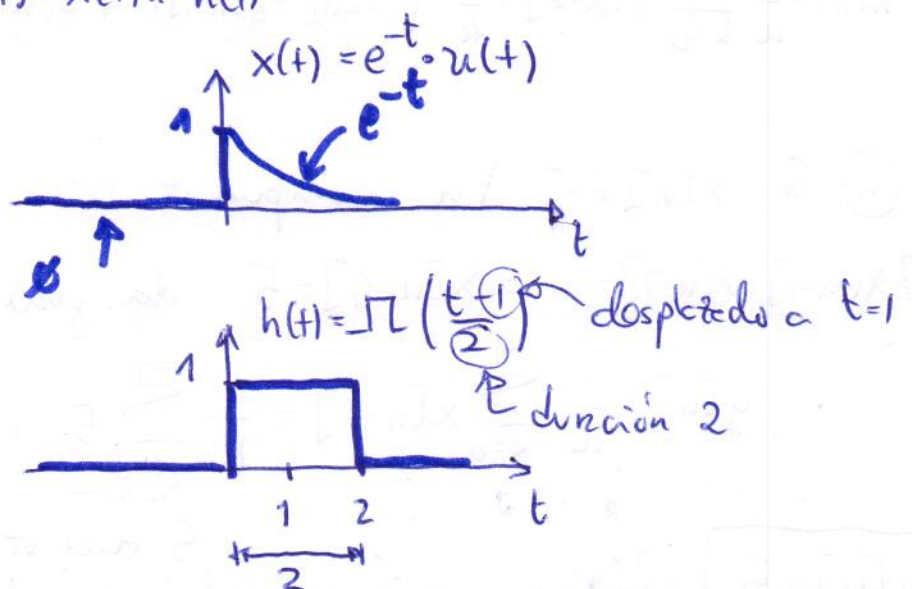 x(t) = e^-t · u(t)
1
e^-t
t
ø
h(t) = Π (t-1/2) desplazado a t=1
1
duración 2
1 2 t
2